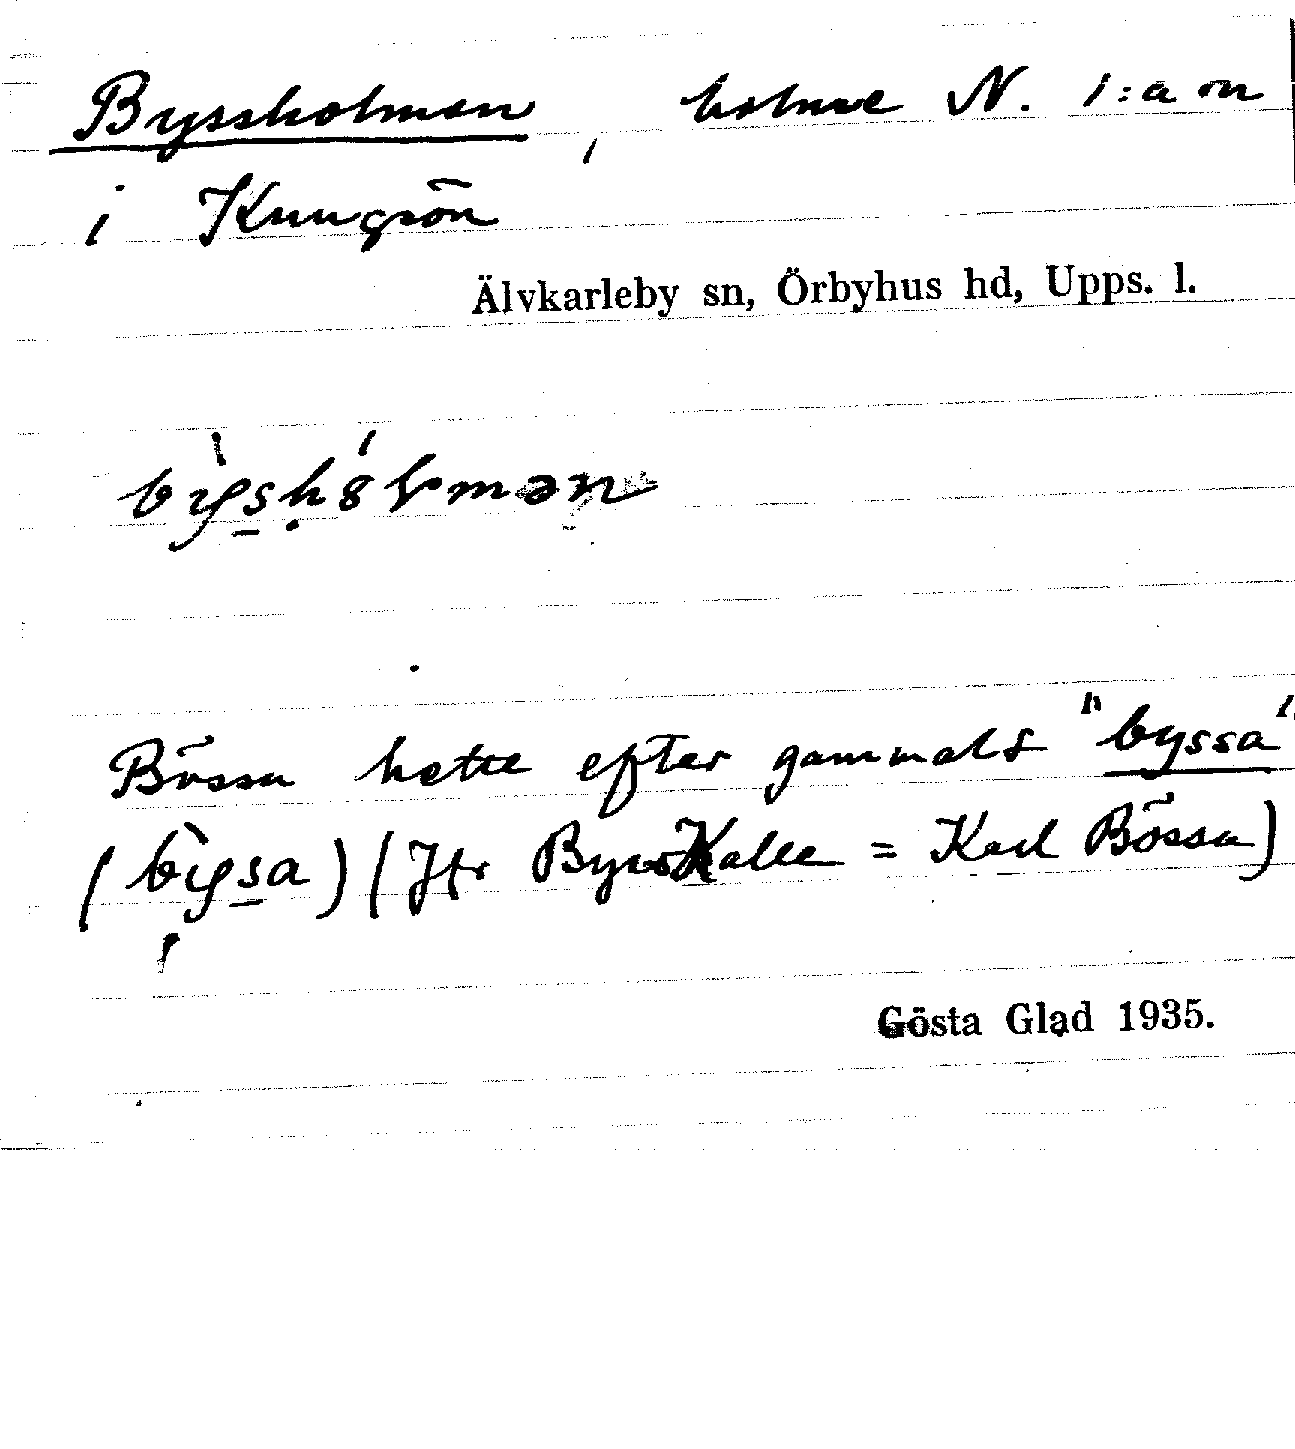 Byssholmen, holme N. 1:a m
i Kungsön
Älvkarleby sn, Örbyhus hd, Upps. l.
by̠sḥ8lmən
Bössa hette efter gammalt "byssa"
(by̠sa) (Jfr ByssKalle = Karl Bössa)
Gösta Glad 1935.